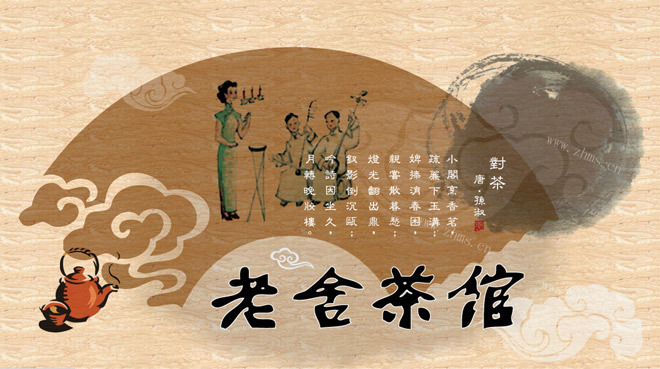 對茶
唐·孫淑
小閣烹香茗，
疏簾下玉溝；
婢捧消春困，
親嘗散暮愁；
燈光翻出鼎，
釵影倒沉甌；
吟詩因坐久，
月轉晚妝樓。
老舍茶馆
www.zhms.cn
zhms.cn